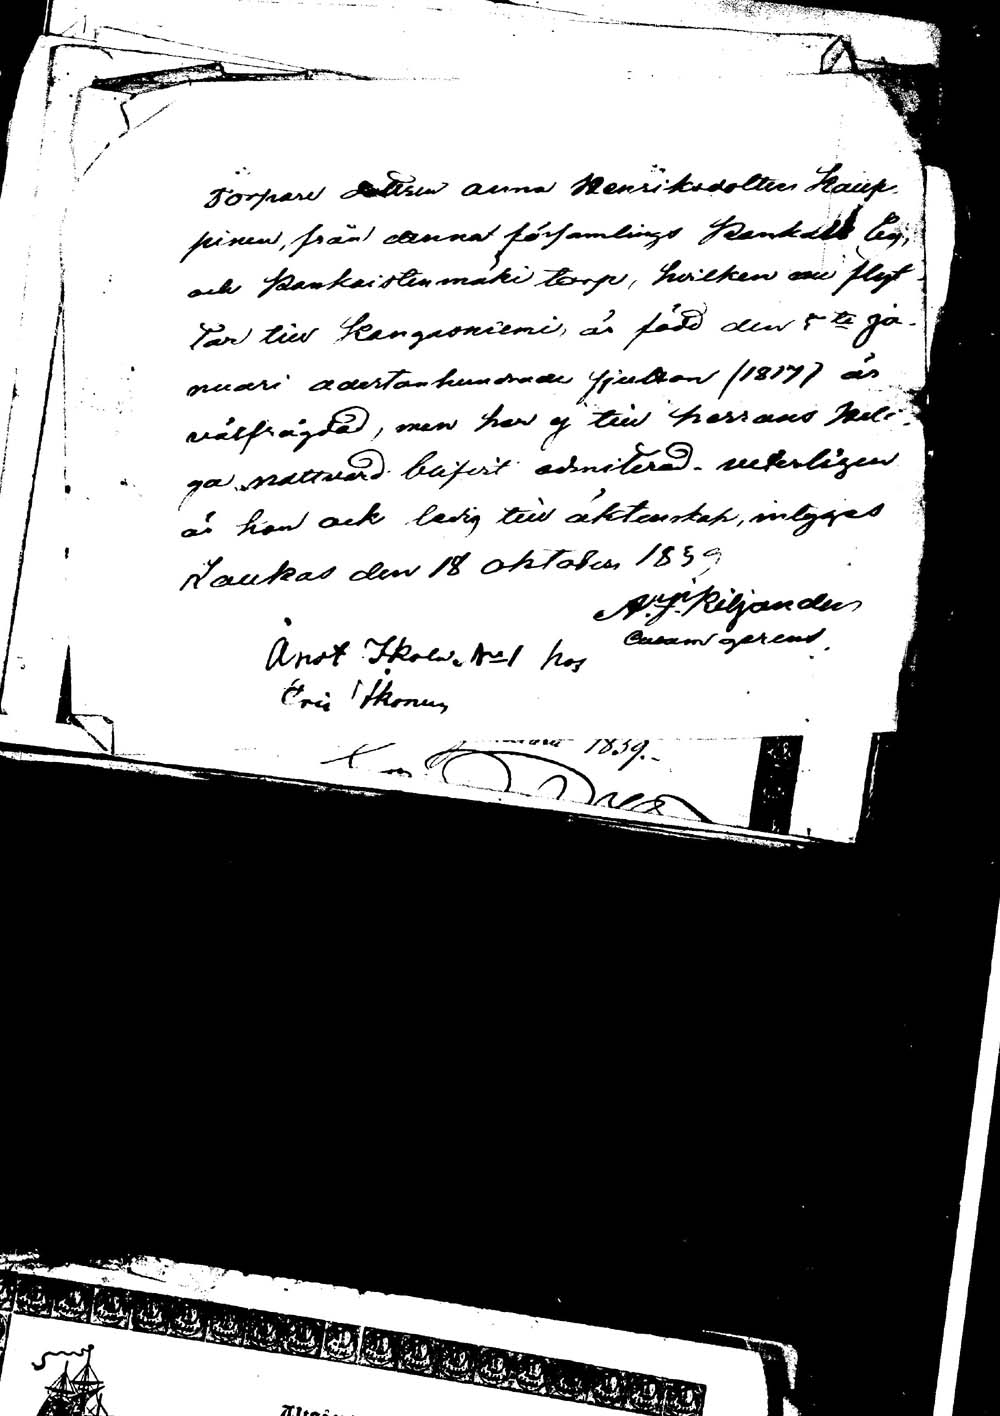 Torpare dottren Anna Henriksdotter Kaup-
pinen, från denna församlings Kankais By,
och Kankaistenmäki torp, hvilken nu flyt-
tar till Kangasniemi, är född den 5te Ja-
nuari adertonhundrade sjutton (1817) är
välfrägdad, men har ej till Herrans Heli-
ga Nattvard blifvit admitterad. veterligen
är hon ock ledig till äktenskap, intygas
Laukas den 18 oktober 1839
Kiljander
Anot Ikola No 1 hos
Eric Ikonen
1839.